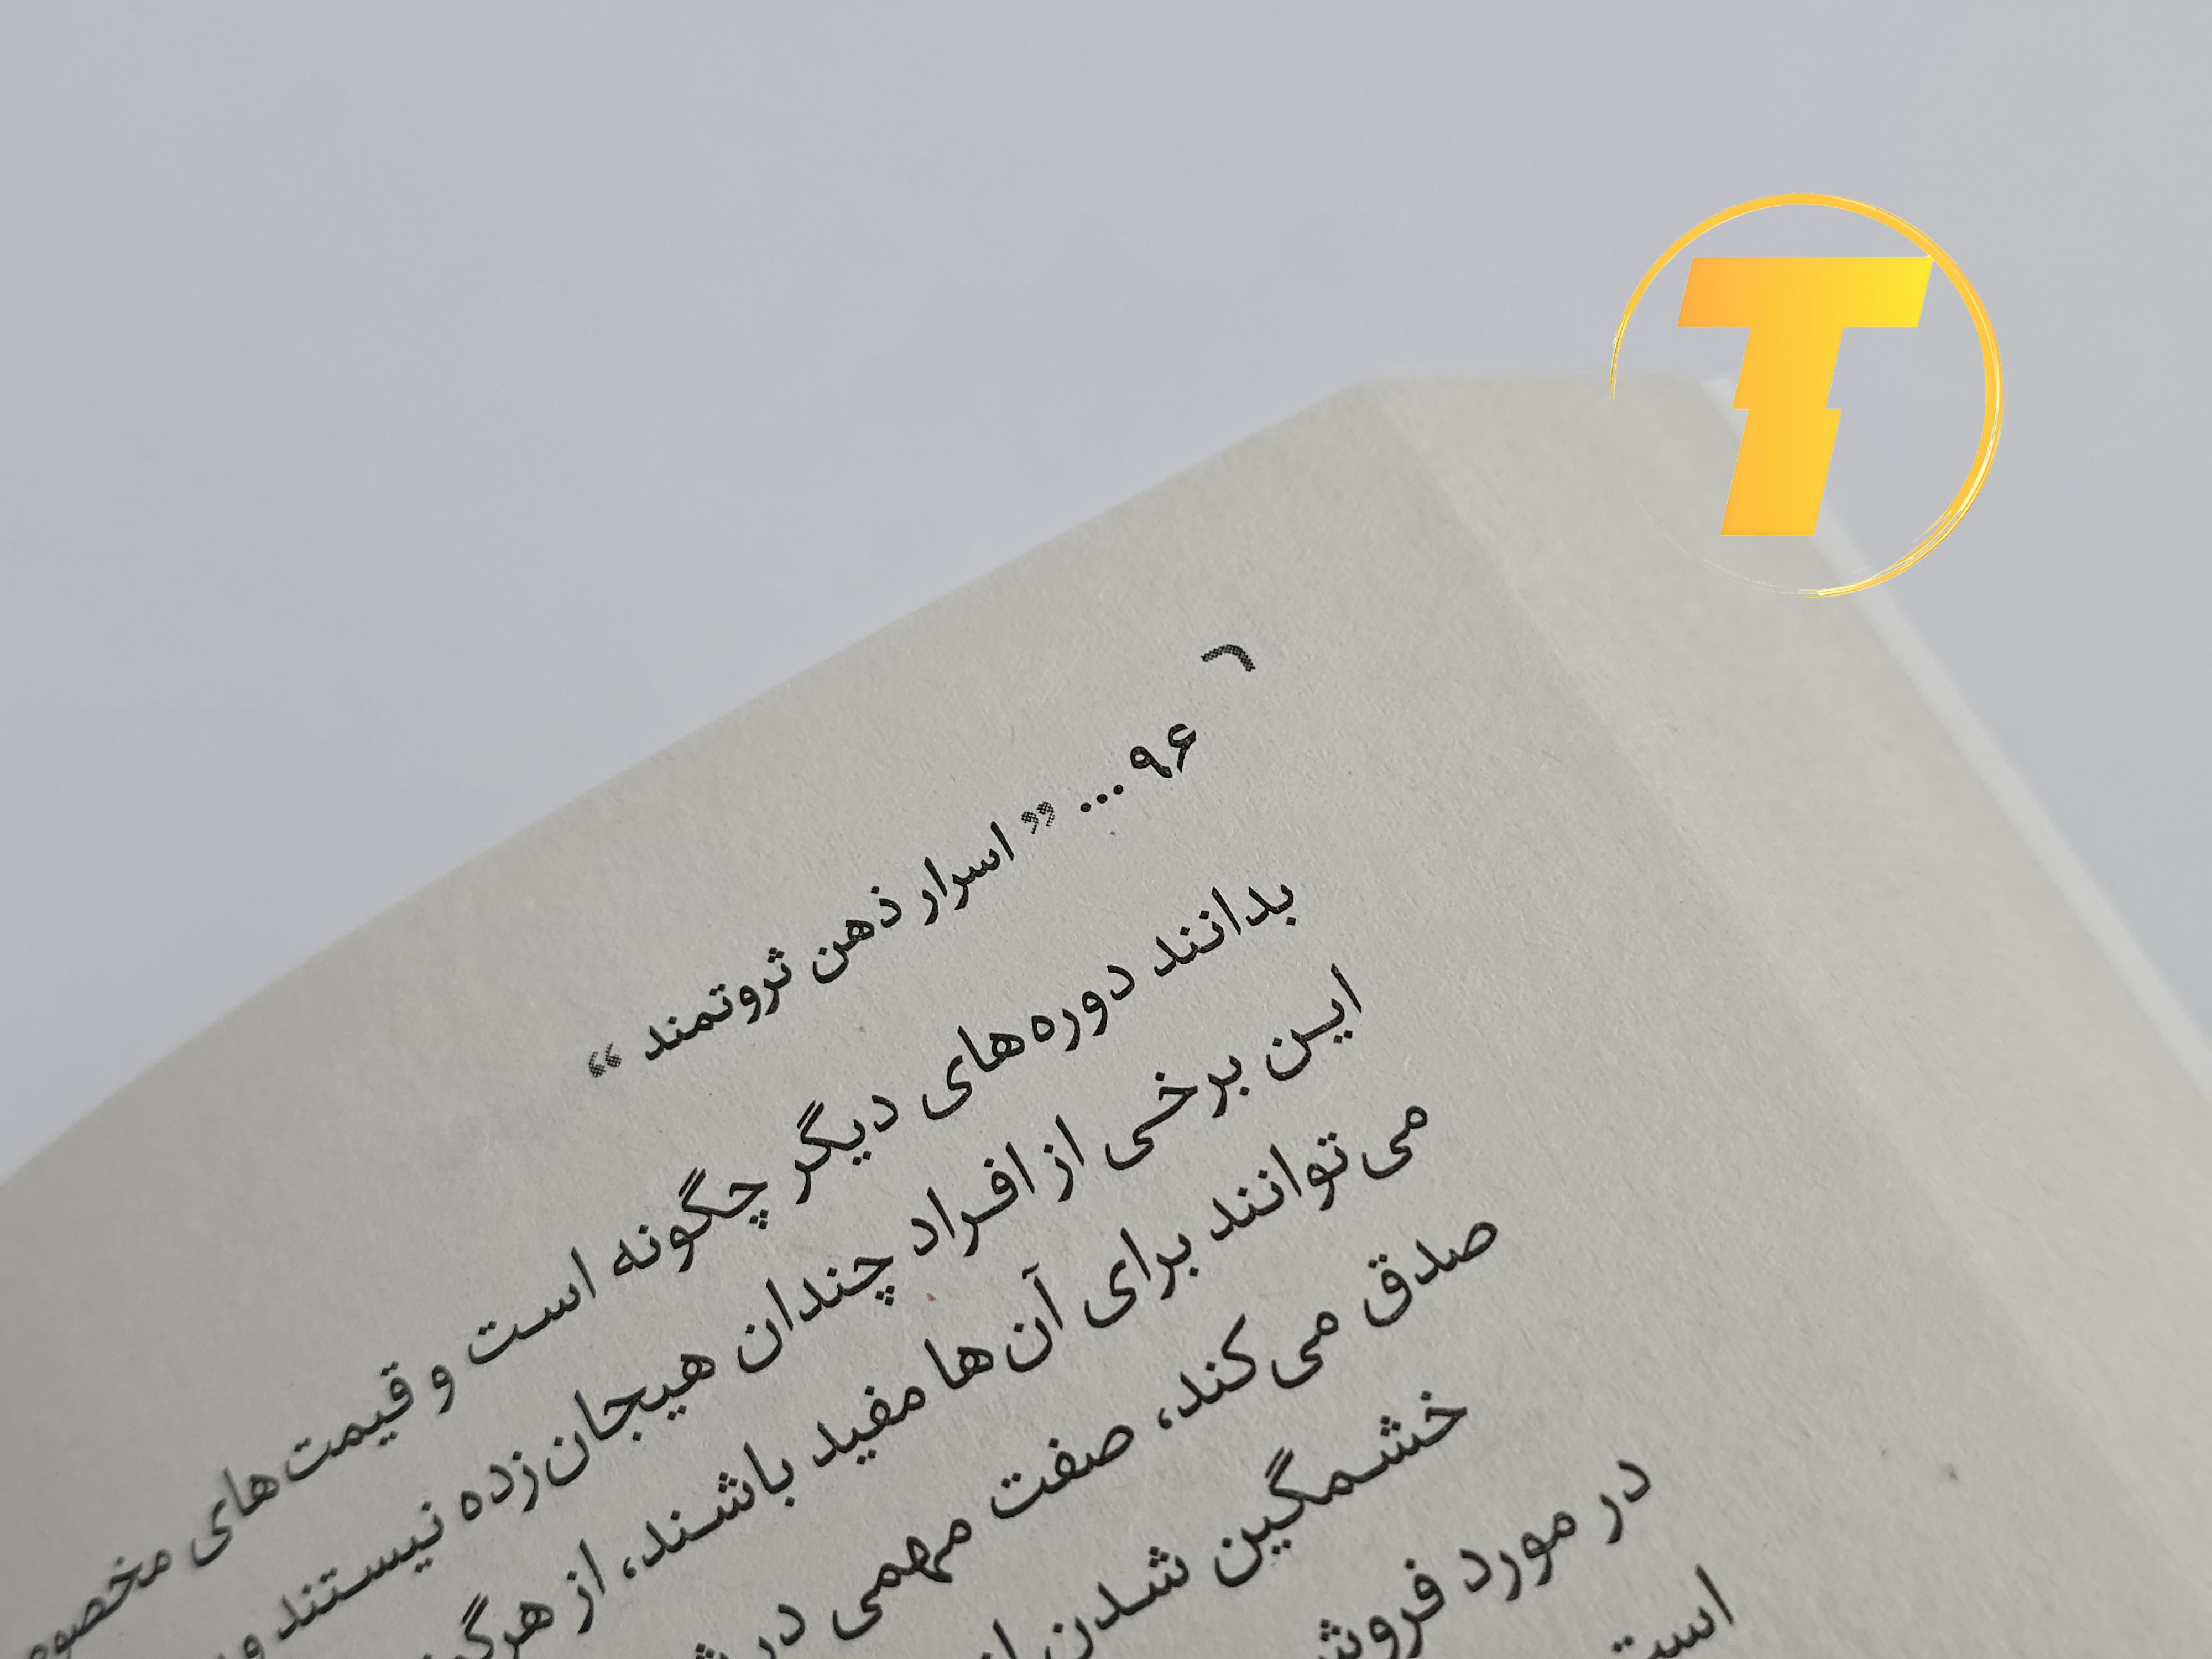 T
۹۶ ... ” اسرار ذهن ثروتمند “
بدانند دوره‌های دیگر چگونه است و قیمت‌های
این برخی از افراد چندان هیجان‌زده نیستند و
می‌توانند برای آن‌ها مفید باشند، از
صدق می‌کند، صفت مهمی در
خشمگین شدن
در مورد
است